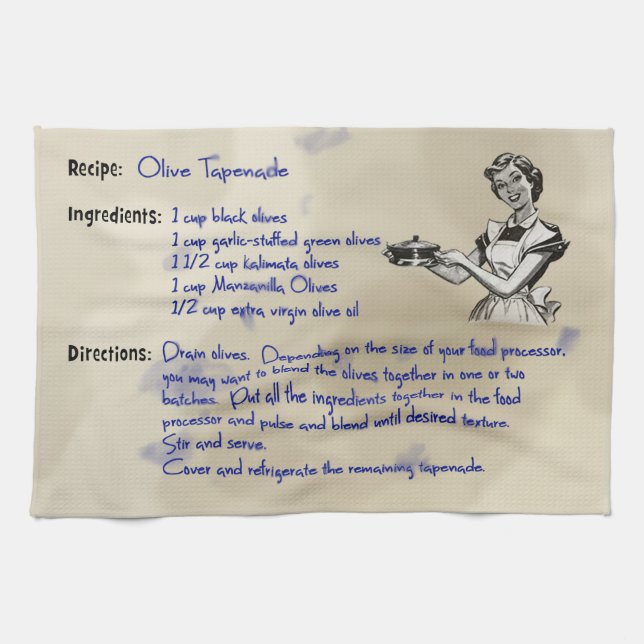 Recipe: Olive Tapenade
Ingredients: 1 cup black olives
1 cup garlic-stuffed green olives
1 1/2 cup kalimata olives
1 cup Manzanilla Olives
1/2 cup extra virgin olive oil
Directions: Drain olives. Depending on the size of your food processor,
you may want to blend the olives together in one or two
batches. Put all the ingredients together in the food
processor and pulse and blend until desired texture.
Stir and serve.
Cover and refrigerate the remaining tapenade.